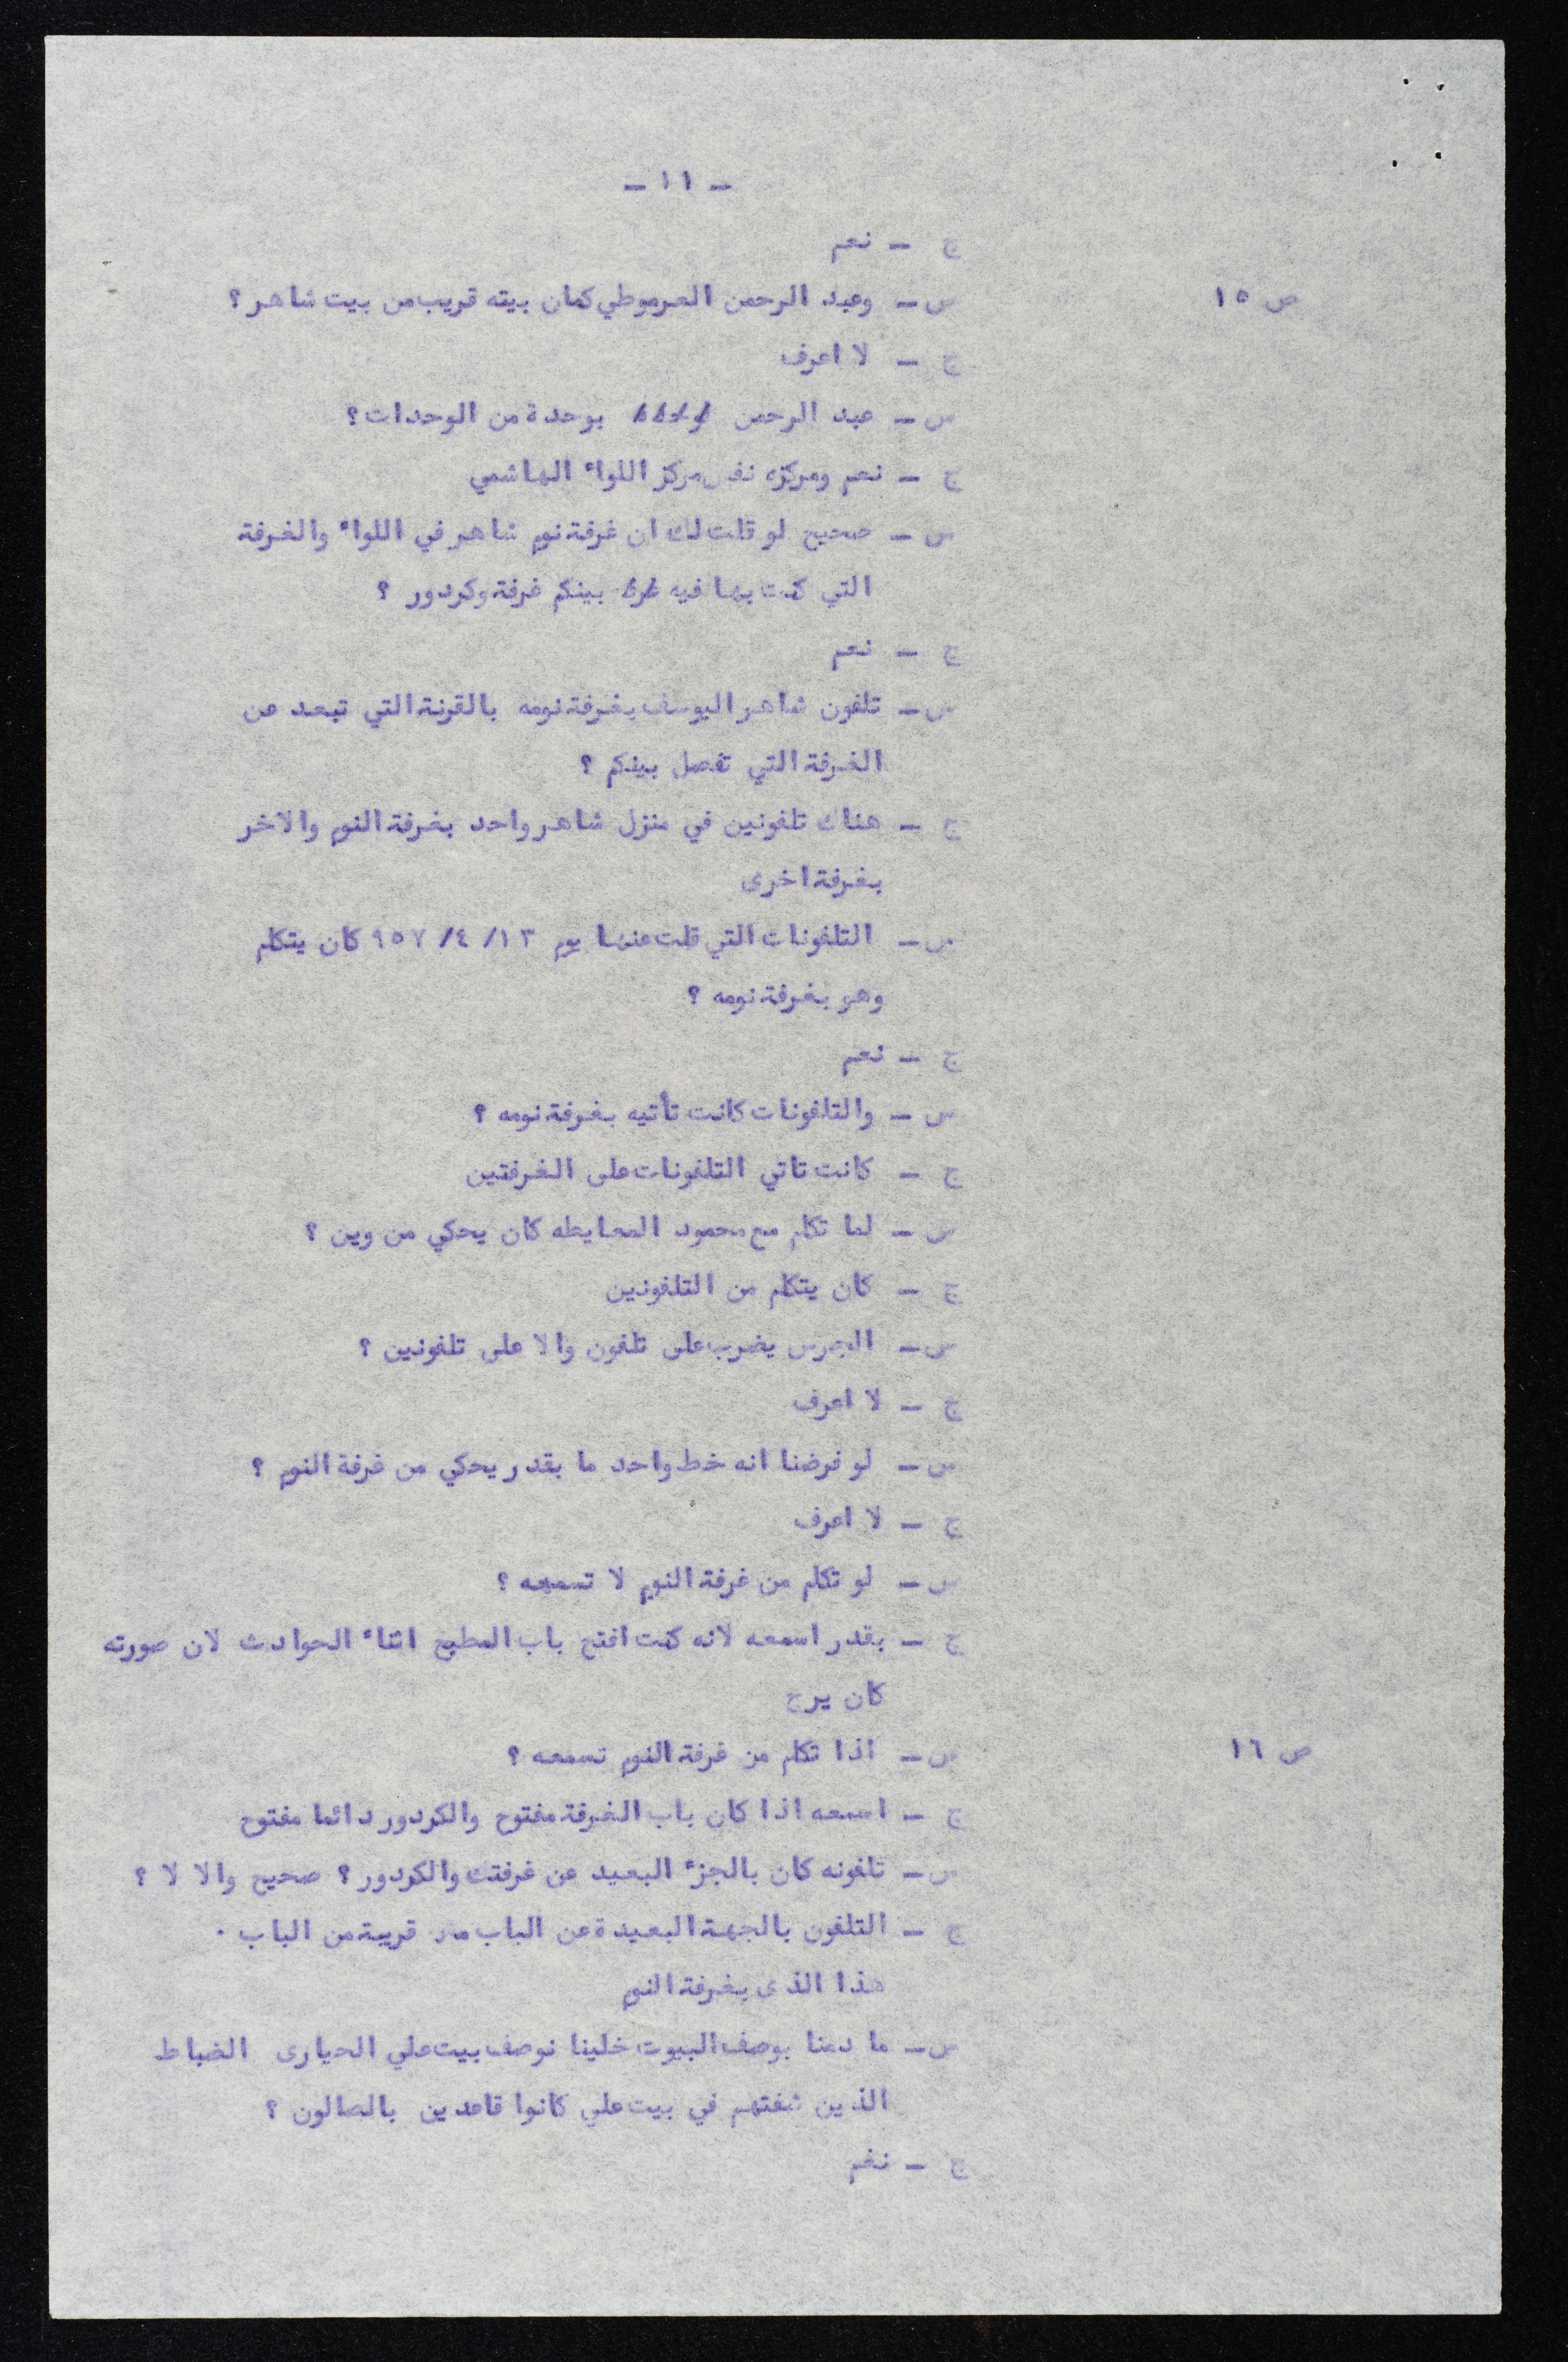 - ١١ -
ج - نعم
ص ١٥
س - وعبد الرحمن العرموطي كمان بيته قريب من بيت شاهر ؟
ج - لا اعرف
س - عبد الرحمن بوحدة من الوحدات ؟
ج - نعم ومركزه نفس مركز اللواء الهاشمي
س - صحيح لو قلت لك ان غرفة نوم شاهر في اللواء والغرفة
التي كنت بها فيه بينكم غرفة وكردور ؟
ج - نعم
س - تلفون شاهر اليوسف بغرفة نومه بالقرنة التي تبعد عن
الغرفة التي تفصل بينكم ؟
ج - هناك تلفونين في منزل شاهر واحد بغرفة النوم والاخر
بغرفة اخرى
س - التلفونات التي قلت عنها يوم ١٣/ ٤/ ٩٥٧ كان يتكلم
وهو بغرفة نومه ؟
ج - نعم
س - والتلفونات كانت تأتيه بغرفة نومه ؟
ج - كانت تاتي التلفونات على الغرفتين
س - لما تكلم مع محمود المعايطه كان يحكي من وين ؟
ج - كان يتكلم من التلفونين
س - الجرس يضرب على تلفون والا على تلفونين ؟
ج - لا اعرف
س - لو فرضنا انه خط واحد ما بقدر يحكي من غرفة النوم ؟
ج - لا اعرف
س - لو تكلم من غرفة النوم لا تسمعه ؟
ج - بقدر اسمعه لانه كنت افتح باب المطبخ اثناء الحوادث لان صورته
كان يرج
ص ١٦
س - اذا تكلم من غرفة النوم تسمعه ؟
ج - اسمعه اذا كان باب الغرفة مفتوح والكردور دائما مفتوح
س - تلفونه كان بالجزء البعيد عن غرفتك والكردور ؟ صحيح والا لا ؟
ج - التلفون بالجهة البعيدة عن الباب قريبة من الباب .
هذا الذى بغرفة النوم
س - ما دمنا بوصف البيوت خلينا نوصف بيت علي الحيارى الضباط
الذين شفتهم في بيت علي كانوا قاعدين بالصالون ؟
ج - نغم